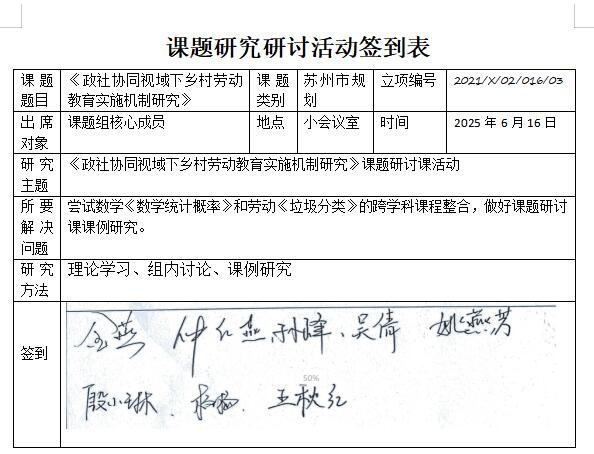 课题研究研讨活动签到表
课题题目 《政社协同视域下乡村劳动教育实施机制研究》 课题类别 苏州市规划 立项编号 2021/X/02/016/03
出席对象 课题组核心成员 地点 小会议室 时间 2025年6月16日
研究主题 《政社协同视域下乡村劳动教育实施机制研究》课题研讨课活动
所要解决问题 尝试数学《数学统计概率》和劳动《垃圾分类》的跨学科课程整合，做好课题研讨课课例研究。
研究方法 理论学习、组内讨论、课例研究
签到
金燕 仲红燕 孙峰、吴倩 姚燕芳
50%
殷小琳、杨 、王秋红